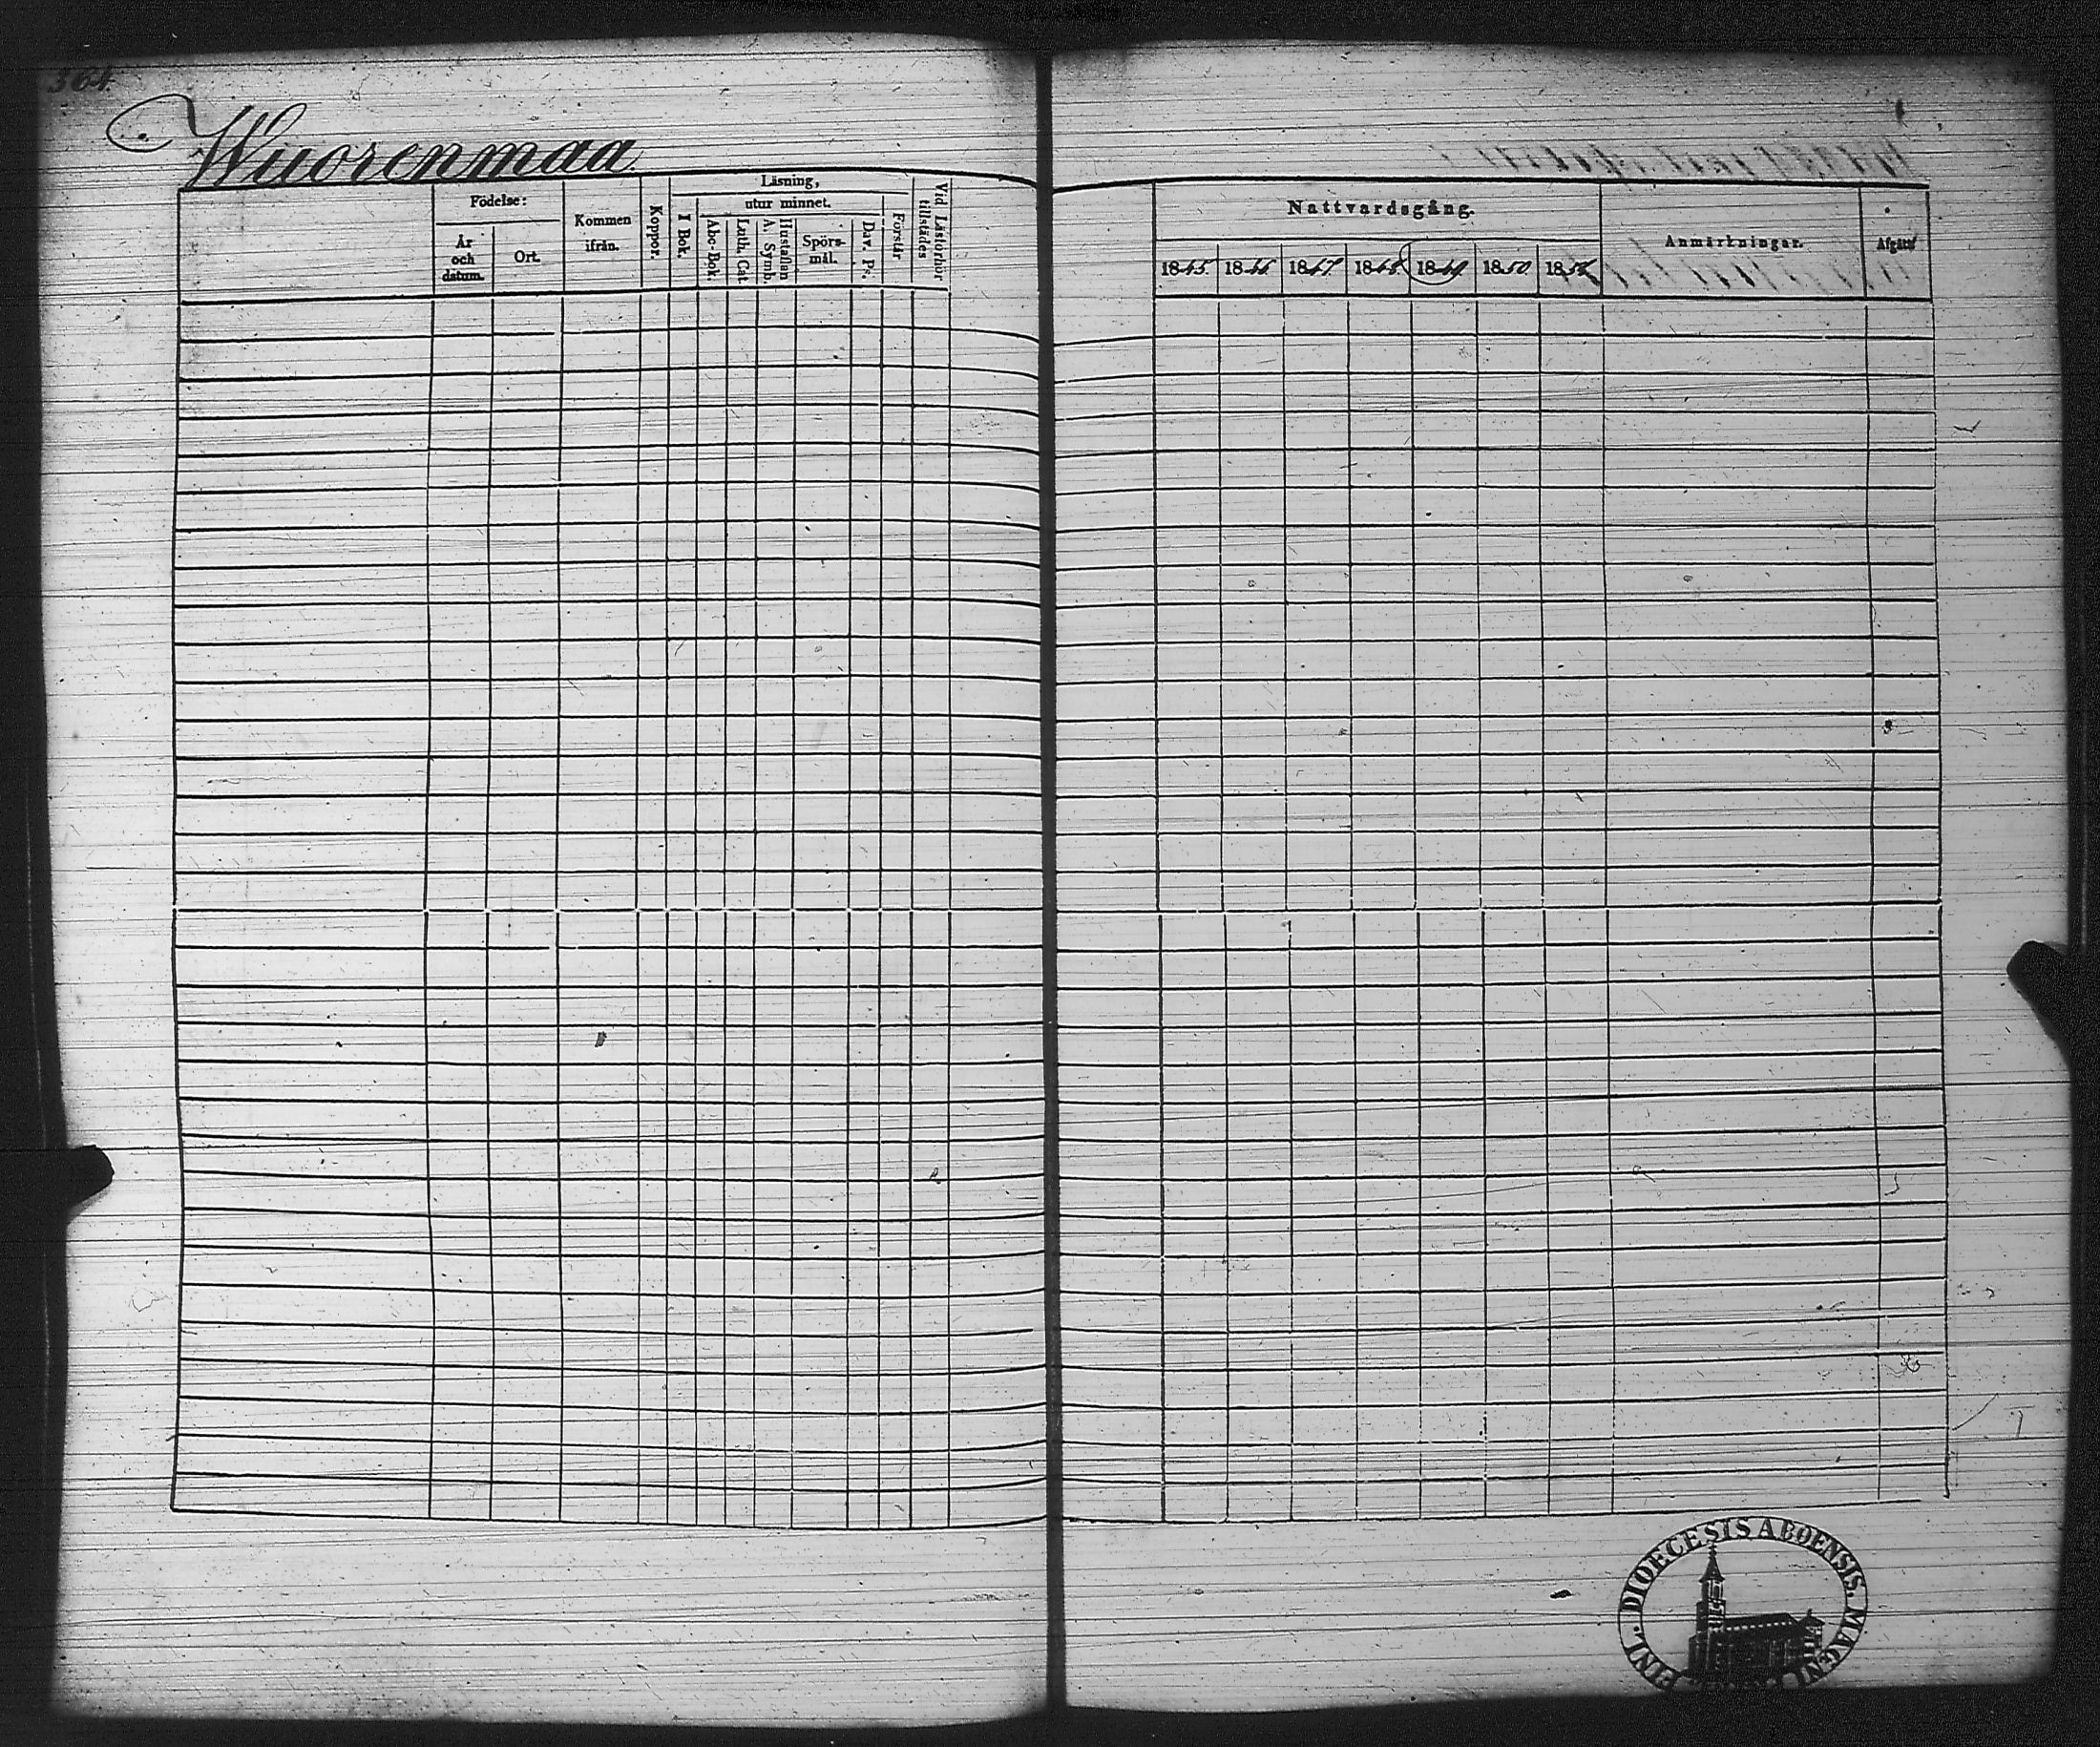 364.
Wuorenmaa.
Födelse:
År och datum.
Ort.
Kommen ifrån.
Koppor.
Läsning,
utur minnet.
I Bok.
Abc-Bok.
Luth. Cat.
Hustaflan A. Symb.
Spörs-
mål.
Dav. Ps.
Forstår
Vid Läsförhör tillstädes
Nattvardsgång.
1845. 1846 1847 1848 1849 1850
Anmärkningar.
Afgått
FINL. DIOECESIS ABOENSIS. MAGNI